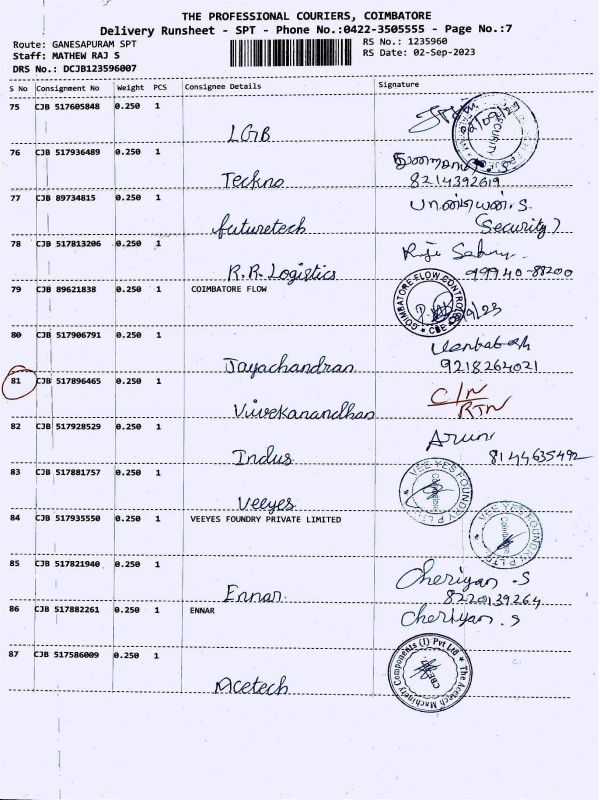 THE PROFESSIONAL COURIERS, COIMBATORE
Delivery Runsheet - SPT - Phone No.:0422-3505555 - Page No.:7
Route: GANESAPURAM SPT
RS No.: 1235960
Staff: MATHEW RAJ S
RS Date: 02-Sep-2023
DRS No.: DCJB123596007
S No Consignment No Weight PCS Consignee Details Signature
75 CJB 517605848 0.250 1
LGB
SECURITY
76 CJB 517936489 0.250 1
Techno
8214392619
77 CJB 89734815 0.250 1
futuretech
பாண்டியன்.S.
(Security)
78 CJB 517813206 0.250 1
R.R. Logistics
99940-88200
79 CJB 89621838 0.250 1 COIMBATORE FLOW
COIMBATORE FLOW CONTROL
CBE
80 CJB 517906791 0.250 1
Jayachandran
Venkatesh
9218264021
81 CJB 517896465 0.250 1
Vivekanandhan
C/N
RTN
82 CJB 517928529 0.250 1
Indus
Arun
8144635492
83 CJB 517881757 0.250 1
Veeyes
VEE YES FOUNDRY P LTD
Coimbatore
84 CJB 517935550 0.250 1 VEEYES FOUNDRY PRIVATE LIMITED
VEE YES FOUNDRY P LTD
Coimbatore
85 CJB 517821940 0.250 1
Ennar
Cheriyan .S
8220139264
86 CJB 517882261 0.250 1 ENNAR
Cheriyan .S
87 CJB 517586009 0.250 1
Acetech
The Acetech Machinery Components (I) Pvt Ltd
CBE